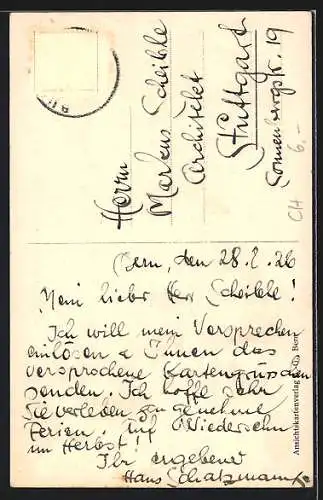 Herrn
Markus Scheible
Architekt
Stuttgart
Sonnenbergstr. 19
CH
6.-
Bern, den 28. 7. 26
Mein lieber Herr Scheible!
Ich will mein Versprechen
einlösen & Ihnen das
versprochene Kartengrüsschen
senden. Ich hoffe sehr
Sie verleben angenehme
Ferien. Auf Wiedersehn
im Herbst!
Ihr ergebener
Hans Schatzmann
Ansichtskartenverlag Bern